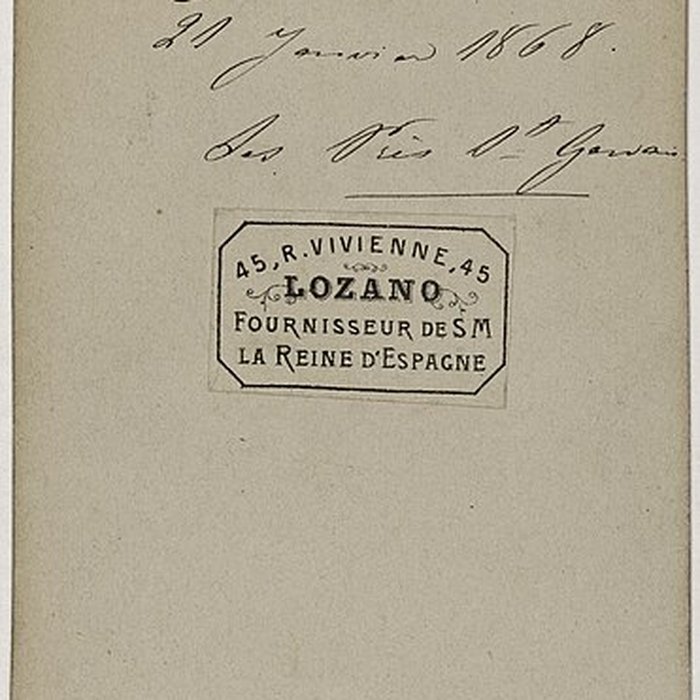 21 Janvier 1868.
Les Près St Gervais
45, R. VIVIENNE, 45
LOZANO
FOURNISSEUR DE S M
LA REINE D'ESPAGNE